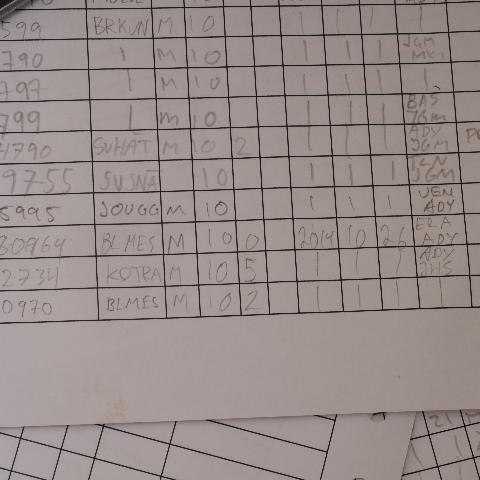 599 BRKUN M 10 | | | |
790 | M 10 | | | JGM MKI
797 | M 10 | | | |
799 | M 10 | | | BAS JGM
4790 SUHAT M 10 2 | | | ADY JGM
9755 SUSNA 10 | | | JGM
5995 JOUGG M 10 | | | UEM ADY
80964 BLMES M 10 0 2014 10 26 ERA ADY
2734 KOTRA M 10 5 | | | ADY JHS
0970 BLMES M 10 2 | | | |
21